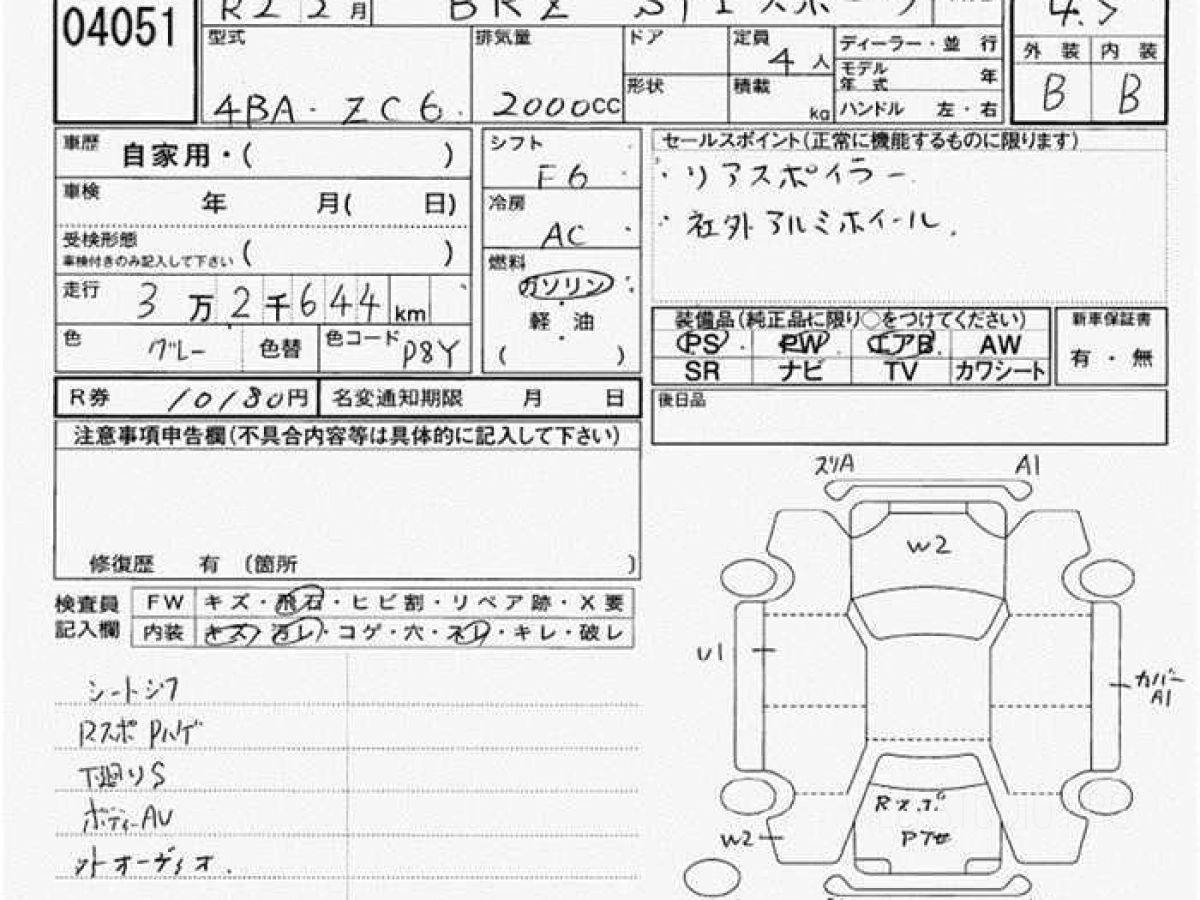 04051
R2 2月 BRZ STI スポーツ 4.5
型式 排気量 ドア 定員 4人 ディーラー・並 行 外 装 内 装
4BA-ZC6 2000CC 形状 積載 kg モデル年式 年 B B
ハンドル 左・右
車歴 自家用・( )
車検 年 月( 日)
受検形態 ( )
車検付きのみ記入して下さい
走行 3万2千644km
色 グレー 色替 色コード P8Y
シフト F6
冷房 AC
燃料 ガソリン
軽・油
( )
セールスポイント(正常に機能するものに限ります)
・リアスポイラー
・社外アルミホイール.
装備品(純正品に限り○をつけてください) 新車保証書
PS PW エアB AW 有・無
SR ナビ TV カワシート
R券 10180円 名変通知期限 月 日
後日品
注意事項申告欄(不具合内容等は具体的に記入して下さい)
修復歴 有 (箇所 )
検査員 FW キズ・飛石・ヒビ割・リペア跡・X要
記入欄 内装 キズ・汚レ・コゲ・穴・スレ・キレ・破レ
シートシワ
Rスポ Pハゲ
下廻りS
ボディーAU
オーディオ.
スリA A1
W2
U1
カバー
A1
Rスポ
Pアセ
W2